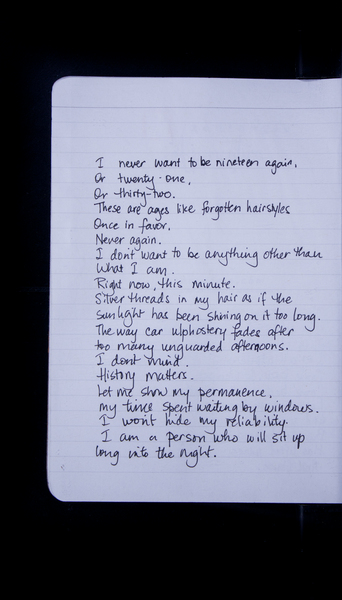 I never want to be nineteen again,
Or twenty-one,
Or thirty-two.
These are ages like forgotten hairstyles
Once in favor,
Never again.
I don't want to be anything other than
What I am.
Right now, this minute.
Silver threads in my hair as if the
sunlight has been shining on it too long.
The way car ulphostery fades after
too many unguarded afternoons.
I dont mind.
History matters.
Let me show my permanence,
my time spent waiting by windows.
I won't hide my reliability.
I am a person who will sit up
long into the night.